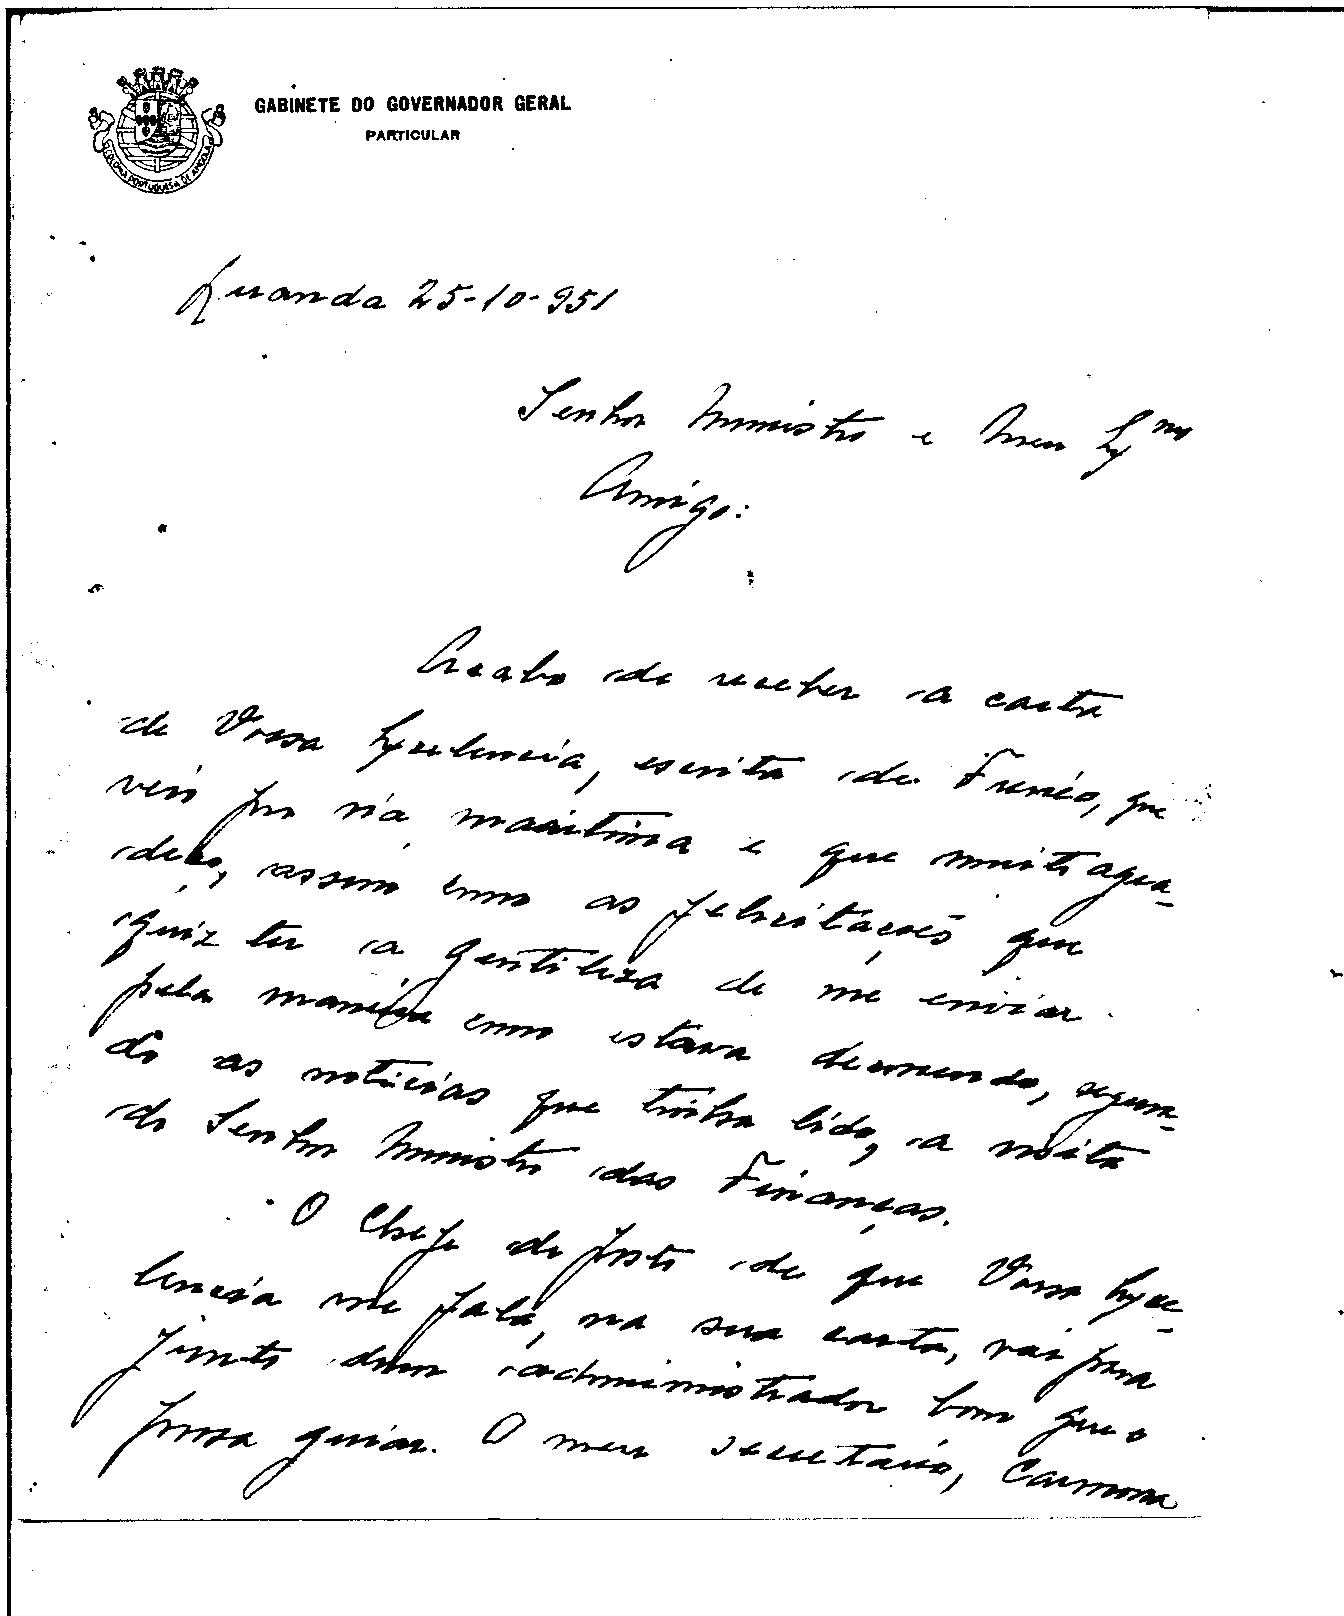 GABINETE DO GOVERNADOR GERAL
PARTICULAR
COLONIA PORTUGUESA DE ANGOLA
Luanda 25-10-951
Senhor Ministro e Meu Exmo
Amigo:
Acabo de receber a carta
de Vossa Excelencia, escrita do Funchal, que
veio por via maritima e que muito agra-
deço, assim como as felicitações que
quiz ter a gentileza de me enviar
pela maneira como estava decorrendo, segun-
do as noticias que tinha lido, a visita
do Senhor Ministro das Finanças.
O Chefe de posto de que Vossa Exce-
lencia me fala, na sua carta, vai para
junto dum administrador bom que o
possa guiar. O meu secretário, Carmona